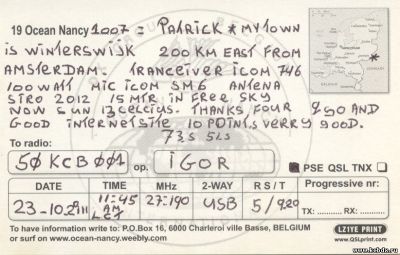 19 Ocean Nancy 1007 = PATRICK * MY TOWN
is WINTERSWIJK 200 KM EAST FROM
AMSTERDAM. TRANCEIVER ICOM 746
100 WATT MIC ICOM SM6 ANTENA
SIRO 2012 / 15 MTR IN FREE SKY
NOW SUN 13 CELCIUS. THANKS FOUR QSO AND
GOOD INTERNETSITE 10 POINTS VERRY GOOD.
73s 51s
To radio:
50KCB001 op. IGOR PSE QSL TNX
DATE TIME MHz 2-WAY R S / T Progressive nr:
23-10.2011 11:45 AM LCT 27.190 USB 5/9.20 TX: RX:
To have information write to: P.O.Box 16, 6000 Charleroi ville Basse, BELGIUM
or surf on www.ocean-nancy.weebly.com
LZ1YE PRINT
www.QSLprint.com
www.kzbdx.ru